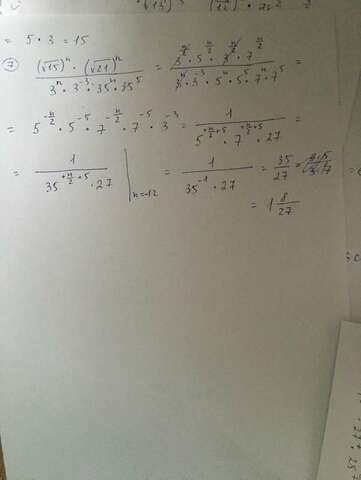 = 5 · 3 = 15
⑦ (√15)ⁿ · (√21)ⁿ / 3ⁿ · 3⁻³ · 35ⁿ · 35⁵ = 3^(n/2) · 5^(n/2) · 3^(n/2) · 7^(n/2) / 3ⁿ · 3⁻³ · 5ⁿ · 5⁵ · 7ⁿ · 7⁵ =
= 5^(-n/2) · 5⁻⁵ · 7^(-n/2) · 7⁻⁵ · 3⁻³ = 1 / 5^(+n/2+5) · 7^(n/2+5) · 27 =
= 1 / 35^(+n/2+5) · 27 |n=-12 = 1 / 35⁻¹ · 27 = 35/27 =
= 1 8/27